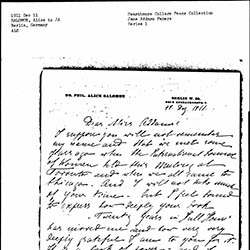 1911 Dec 11
SALOMON, Alice to JA
Berlin, Germany
ALS
Swarthmore College Peace Collection
Jane Addams Papers
Series 1
DR. PHIL. ALICE SALOMON
BERLIN W.
Dear Miss Addams!
I suppose you will not remember
my name and that we met some
years ago when the International Council
of Women held this meeting at
Toronto and when we all came to
Chicago. And I will not take much
of your time. But I feel bound
to express how deeply your book
Twenty Years in Hull House
has moved me and how very
deeply grateful I am to you for it.